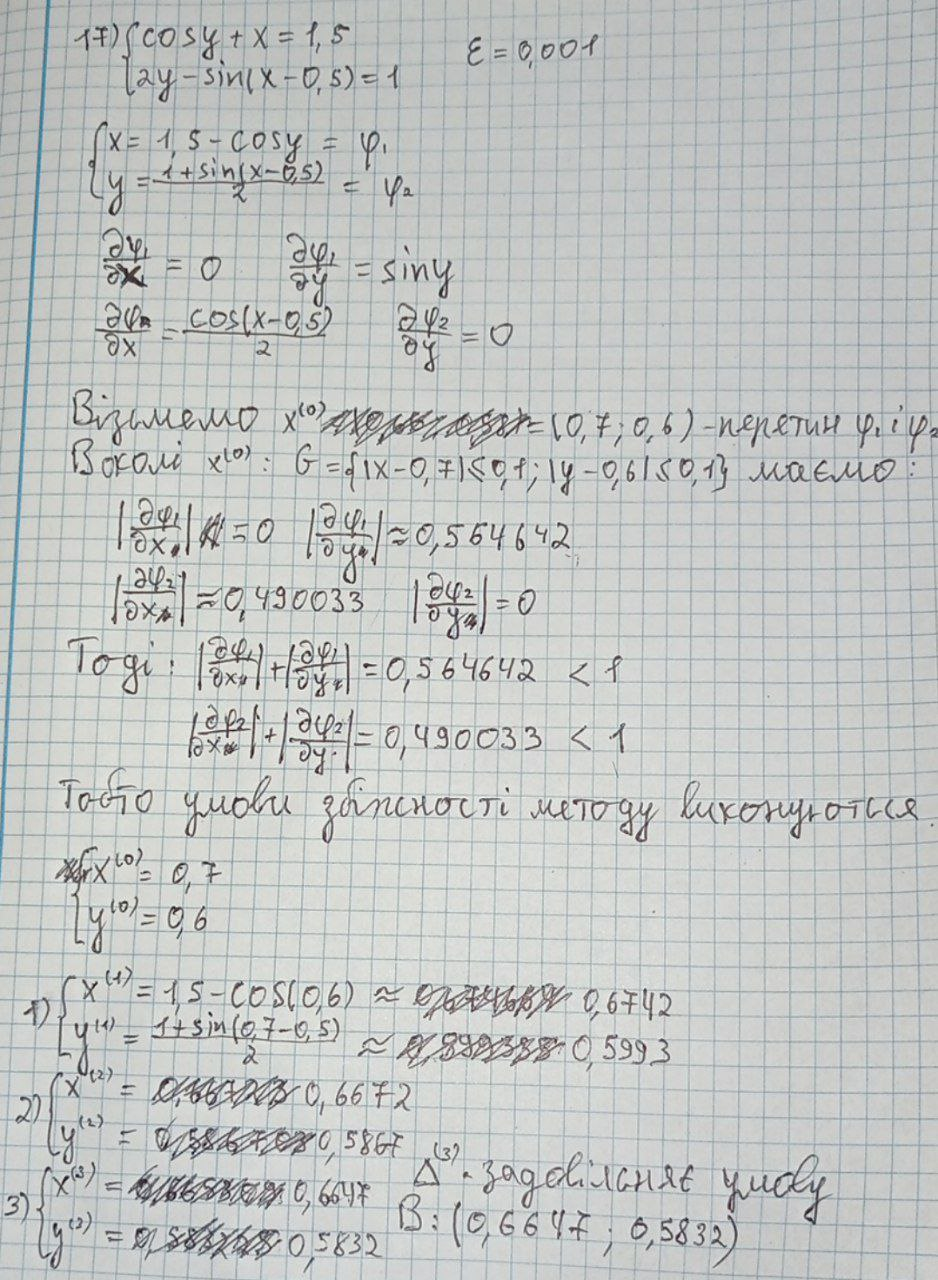 17) { cosy + x = 1,5
2y - sin(x - 0,5) = 1
ε = 0,001
{ x = 1,5 - cosy = φ₁
y = (1 + sin(x - 0,5))/2 = φ₂
∂φ₁/∂x = 0 ∂φ₁/∂y = siny
∂φ₂/∂x = cos(x - 0,5)/2 ∂φ₂/∂y = 0
Візьмемо x⁽⁰⁾ = (0,7; 0,6) - перетин φ₁ і φ₂
В околі x⁽⁰⁾: G = {|x - 0,7| ≤ 0,1; |y - 0,6| ≤ 0,1} маємо:
|∂φ₁/∂x| = 0 |∂φ₁/∂y| ≈ 0,564642
|∂φ₂/∂x| ≈ 0,490033 |∂φ₂/∂y| = 0
Тоді: |∂φ₁/∂x| + |∂φ₁/∂y| = 0,564642 < 1
|∂φ₂/∂x| + |∂φ₂/∂y| = 0,490033 < 1
Тобто умови збіжності методу виконуються
{ x⁽⁰⁾ = 0,7
y⁽⁰⁾ = 0,6
1) { x⁽¹⁾ = 1,5 - cos(0,6) ≈ 0,6742
y⁽¹⁾ = (1 + sin(0,7 - 0,5))/2 ≈ 0,5993
2) { x⁽²⁾ = 0,6672
y⁽²⁾ = 0,5867
3) { x⁽³⁾ = 0,6647
y⁽³⁾ = 0,5832
Δ⁽³⁾ - задовільняє умову
В: (0,6647; 0,5832)